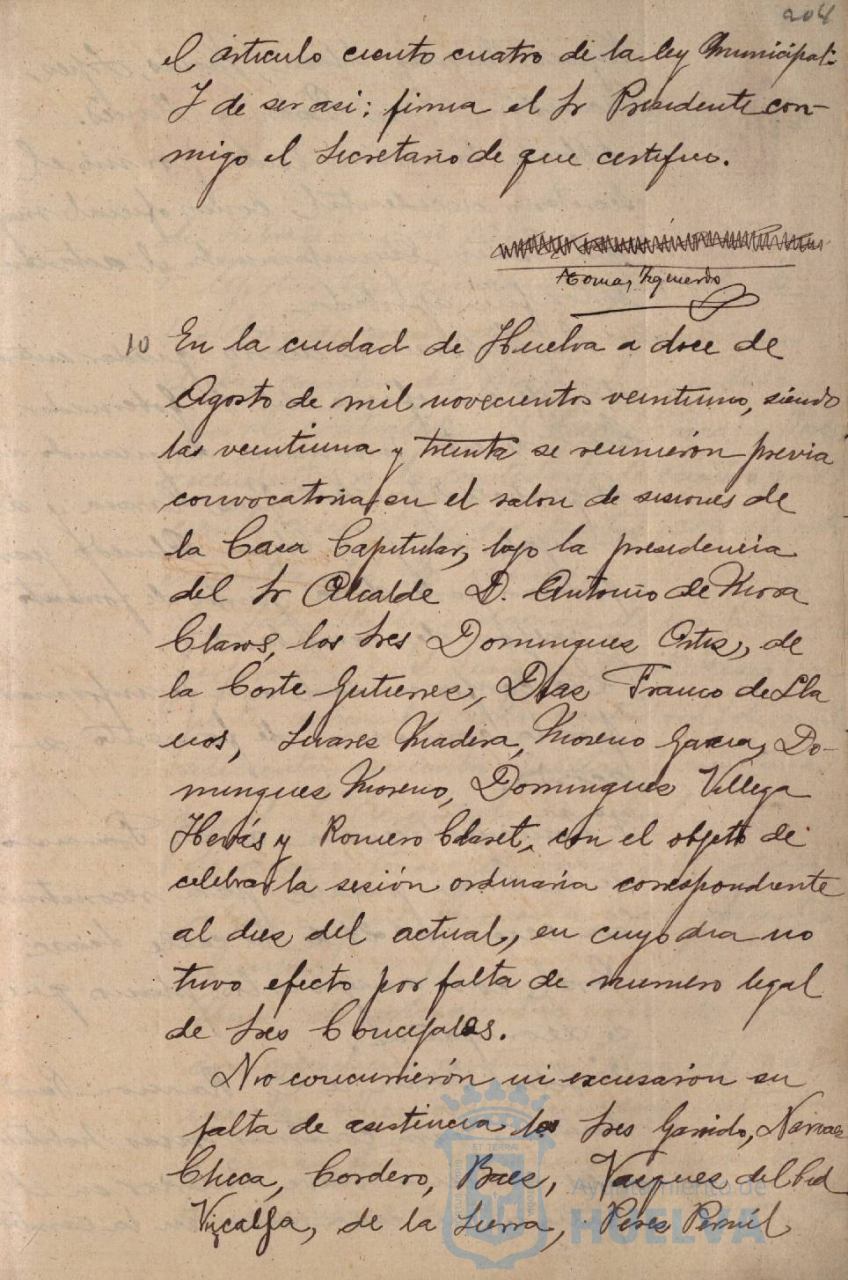 204
el articulo ciento cuatro de la ley Municipal.
Y de ser asi; firma el Sr Presidente con-
migo el Secretario de que certifico.
Tomas Yzquierdo
10 En la ciudad de Huelva a doce de
Agosto de mil novecientos veintiuno, siendo
las veintiuna y treinta se reunieron previa
convocatoria en el salon de sesiones de
la Casa Capitular, bajo la presidencia
del Sr Alcalde D. Antonio de Mora
Claros, los Sres Dominguez Ortiz, de
la Corte Gutierrez, Diaz Franco de Lla
nos, Suarez Madera, Moreno Garcia, Do-
minguez Moreno, Dominguez Villega
Herás y Romero Claret, con el objeto de
celebrar la sesión ordinaria correspondiente
al diez del actual, en cuyo dia no
tuvo efecto por falta de numero legal
de Sres Concejales.
No concurrierón ni excusaron su
falta de asistencia los Sres Garrido, Narvaez
Checa, Cordero, Baez, Vazquez del Cid
Vizcalza, de la Sierra, Perez Pernil
Ayuntamiento de
HUELVA